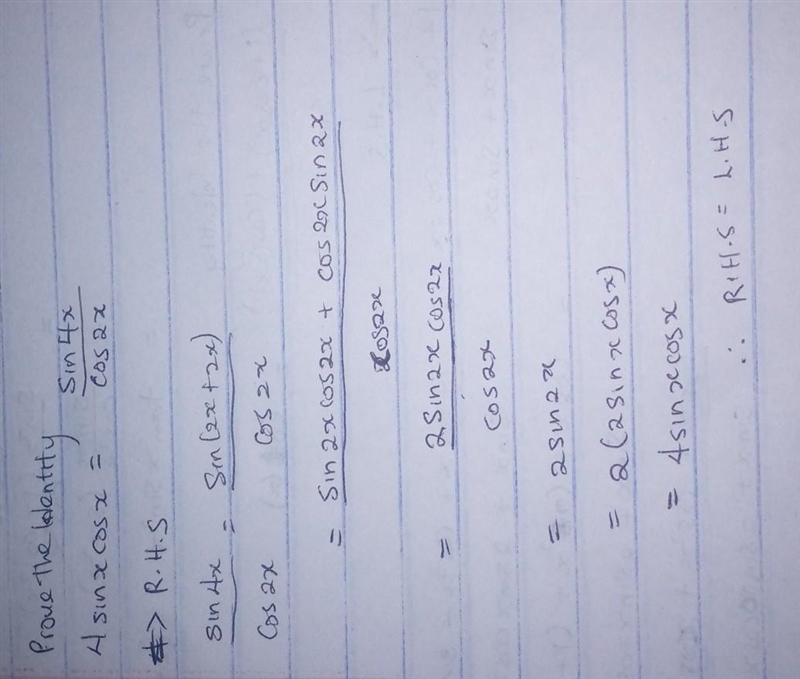 Prove the Identity
4 sin x cos x = sin 4x / cos 2x
=> R.H.S
sin 4x / cos 2x = sin(2x+2x) / cos 2x
= sin 2x cos 2x + cos 2x sin 2x / cos 2x
= 2 sin 2x cos 2x / cos 2x
= 2 sin 2x
= 2 (2 sin x cos x)
= 4 sin x cos x
∴ R.H.S = L.H.S